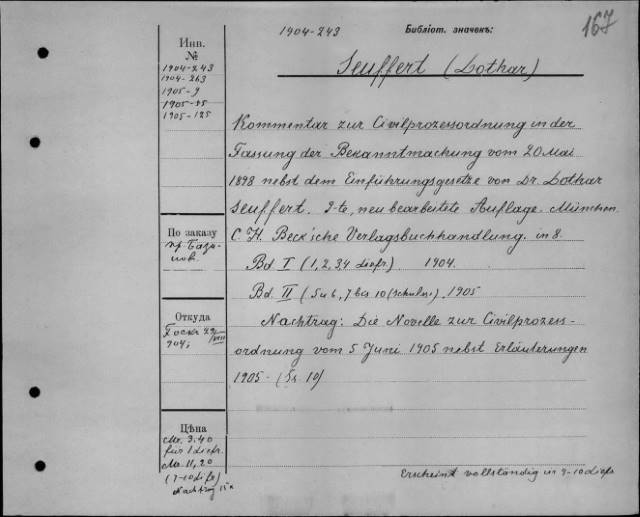 1904-243 Библіот. значекъ: 167
Seuffert (Lothar)
Инв.
№
1904-243
1904-263
1905-9
1905-15
1905-125
Kommentar zur Civilprozessordnung in der
Fassung der Bekanntmachung vom 20 Mai
1898 nebst dem Einführungsgesetze von Dr. Lothar
Seuffert. 9-te, neu bearbeitete Auflage. München.
C. H. Beck'sche Verlagsbuchhandlung. in 8.
Bd. I (1, 2, 3, 4 Liefr.) 1904.
Bd. II (5 u 6, 7 bis 10 (Schluss)). 1905
Nachtrag: Die Novelle zur Civilprozess-
ordnung vom 5 Juni 1905 nebst Erläuterungen
1905 -
По заказу
пр.
Откуда
904,
Цѣна
Mr. 3.40
für 1 Liefr.
Mr. 11,20
(7-10 Lief)
Nachtrag
Erscheint vollständig in 9-10 Liefr